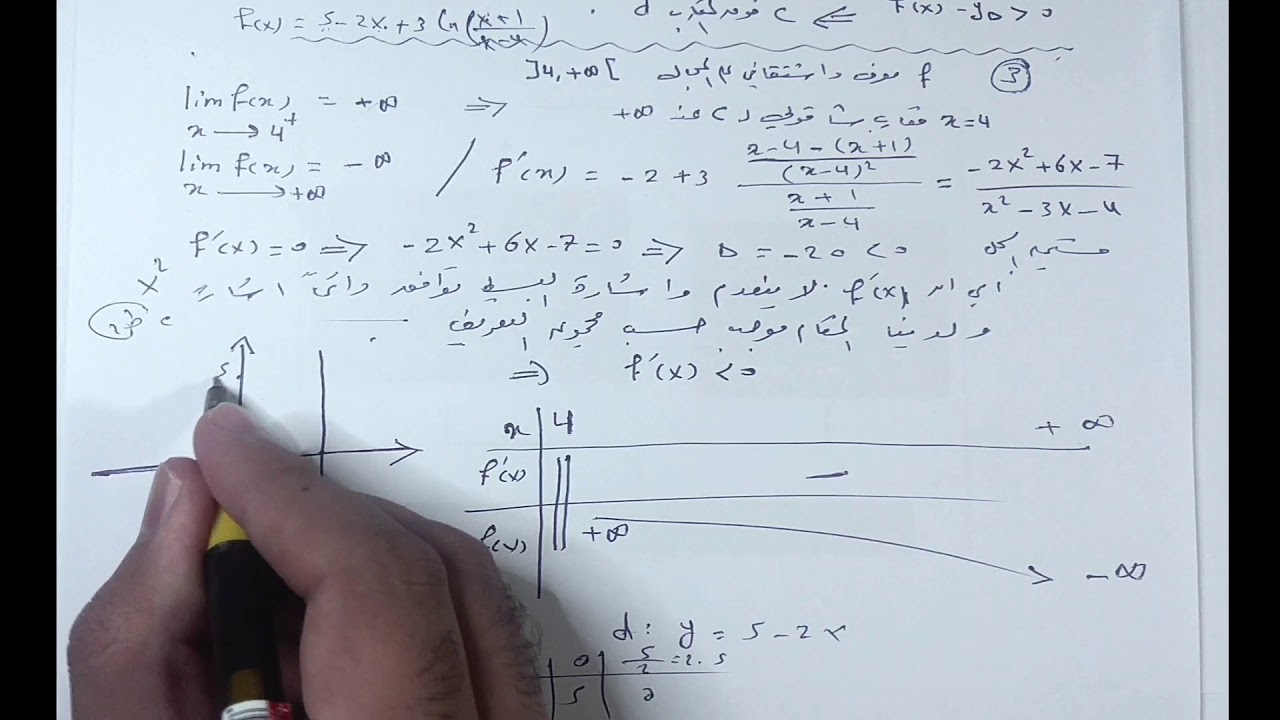 f(x) = 5 - 2x + 3 ln(x+1/x-4) . d فوق المقارب C ⇐ f(x) - y_D > 0
③ f معرف واشتقاقي على المجال ]4, +∞[
lim f(x) = +∞ ⇒ x=4 مقارب شاقولي لـ C عند +∞
x → 4+
lim f(x) = -∞ / f'(x) = -2 + 3 ((x-4-(x+1))/(x-4)^2)/((x+1)/(x-4)) = (-2x^2+6x-7)/(x^2-3x-4)
x → +∞
f'(x)=0 ⇒ -2x^2+6x-7=0 ⇒ D = -20 <0 مستحيل الحل
أي ان f'(x) لا ينعدم واشارة البسط توافق دائماً اشارة x^2
ولدينا المقام موجب حسب مجموعة التعريف
⇒ f'(x) < 0
5
x 4 +∞
f'(x) −
f(x) +∞ -∞
d: y = 5 - 2x
0 5/2 = 2.5
5 0